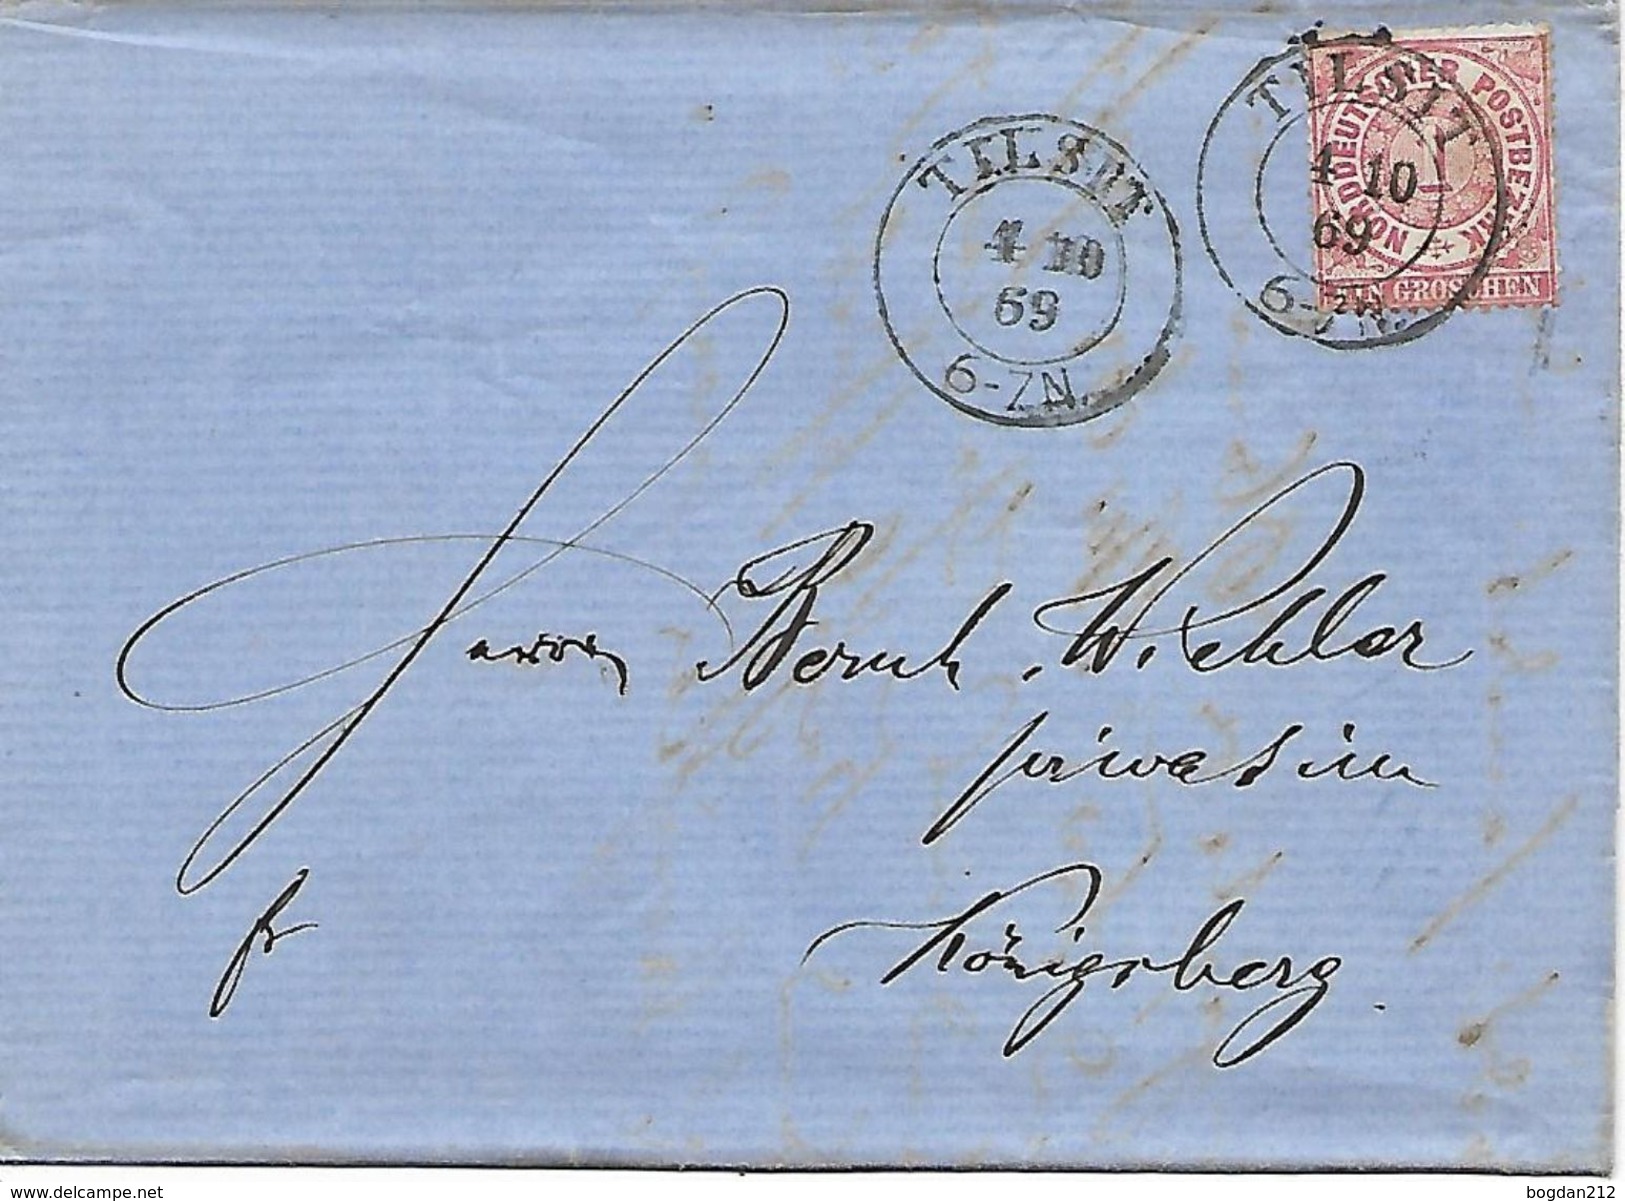 TILSIT
4 10
69
6-7N.
TILSIT
4 10
69
6-7N.
NORDDEUTSCHER POSTBEZIRK
1
EIN GROSCHEN
Herrn Bernh. Wichler
privatim
fr
Königsberg.
delcampe.net
bogdan212